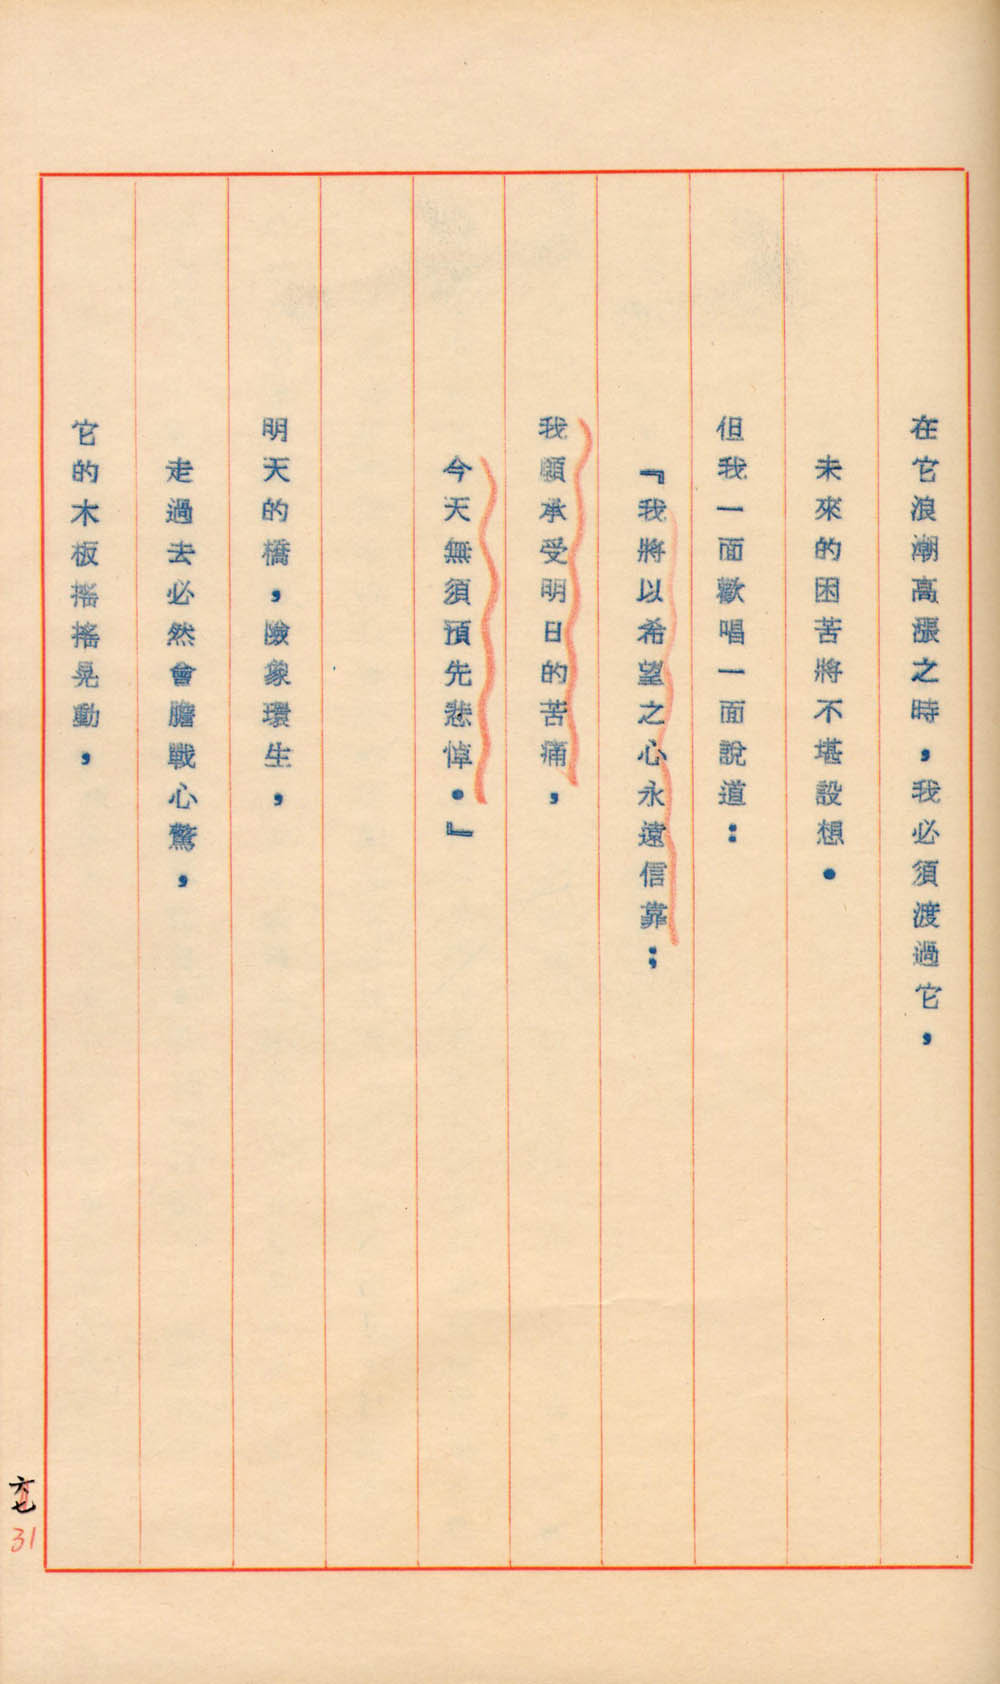 在它浪潮高漲之時，我必須渡過它，
未來的困苦將不堪設想．
但我一面歡唱一面說道：
『我將以希望之心永遠信靠；
我願承受明日的苦痛，
今天無須預先悲悼．』
明天的橋，險象環生，
走過去必然會膽戰心驚，
它的木板搖搖晃動，
31